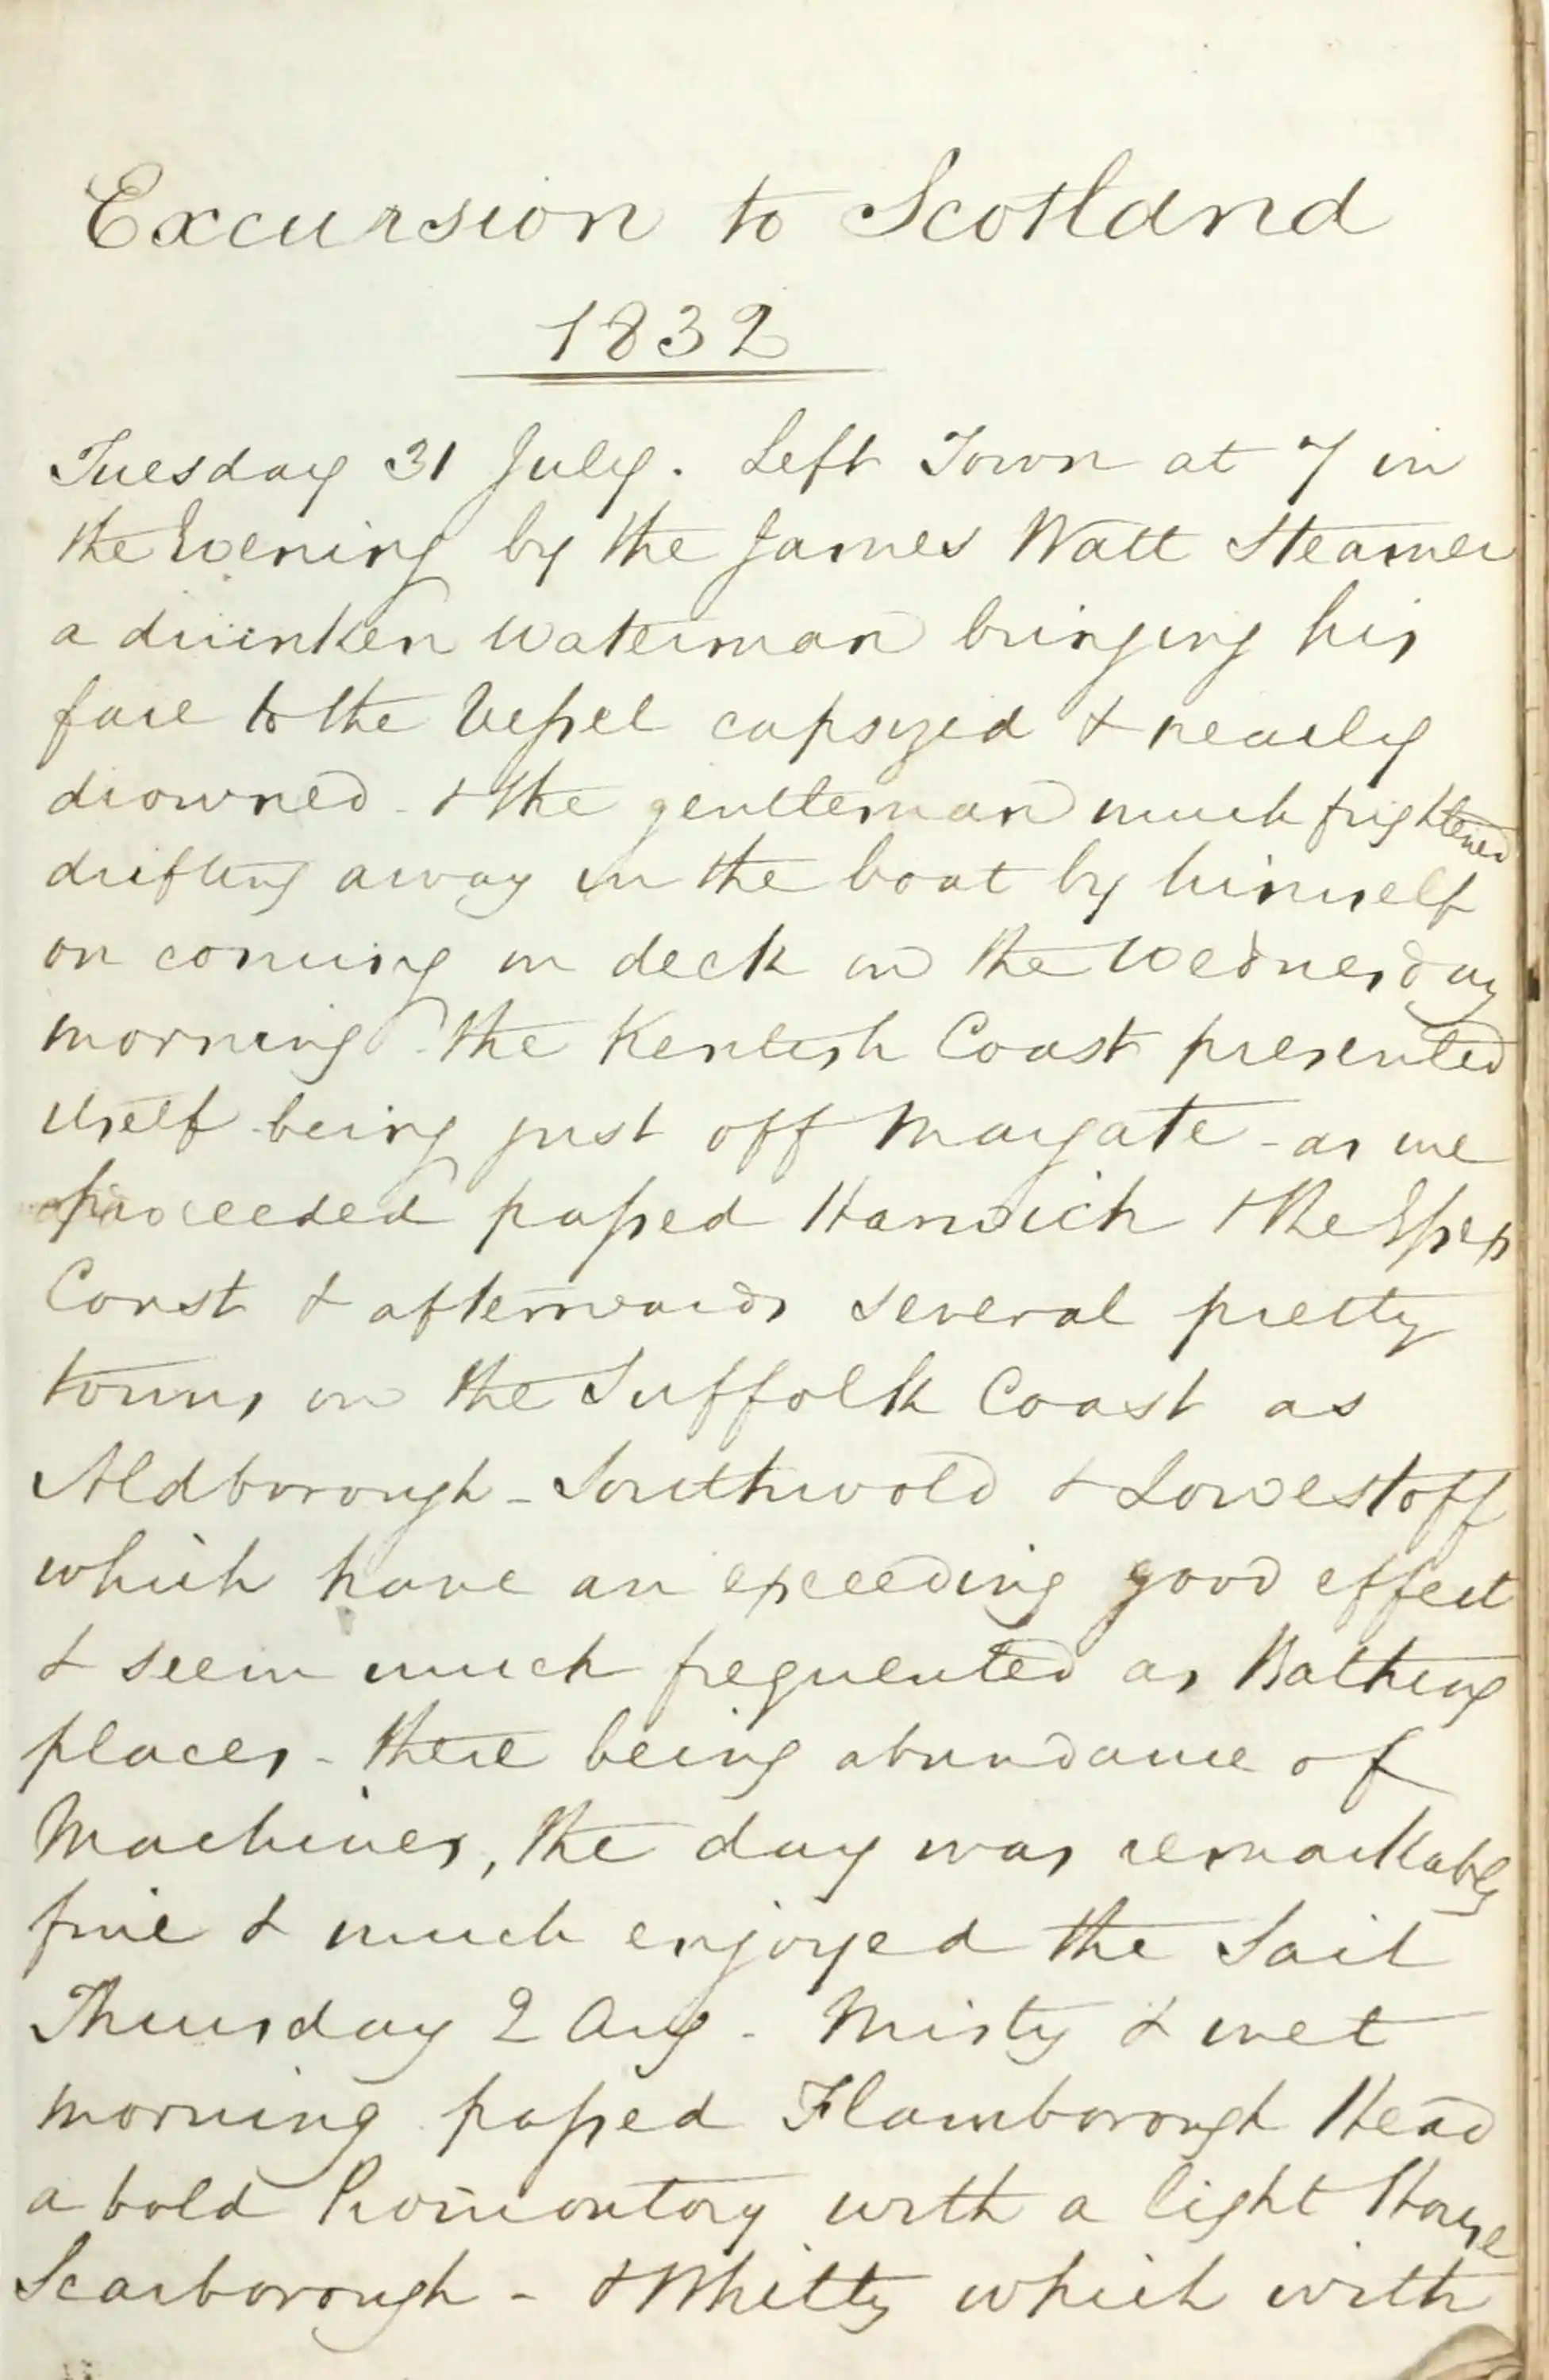 Excursion to Scotland
1832
Tuesday 31 July. Left Town at 7 in
the Evening by the James Watt Steamer
a drunken Waterman bringing his
fare to the Vessel capsized & nearly
drowned - & the gentleman much frightened
drifting away in the boat by himself
on coming on deck on the Wednesday
morning the Kentish Coast presented
itself being just off Margate - as we
proceeded passed Harwich & the Essex
Coast & afterwards several pretty
towns on the Suffolk Coast as
Aldborough - Southwold & Lowestoff
which have an exceeding good effect
& seem much frequented as Bathing
places - there being abundance of
Machines, the day was remarkably
fine & much enjoyed the Sail
Thursday 2 Aug - Misty & wet
morning passed Flamborough Head
a bold Promontory with a light House
Scarborough - & Whitby which with